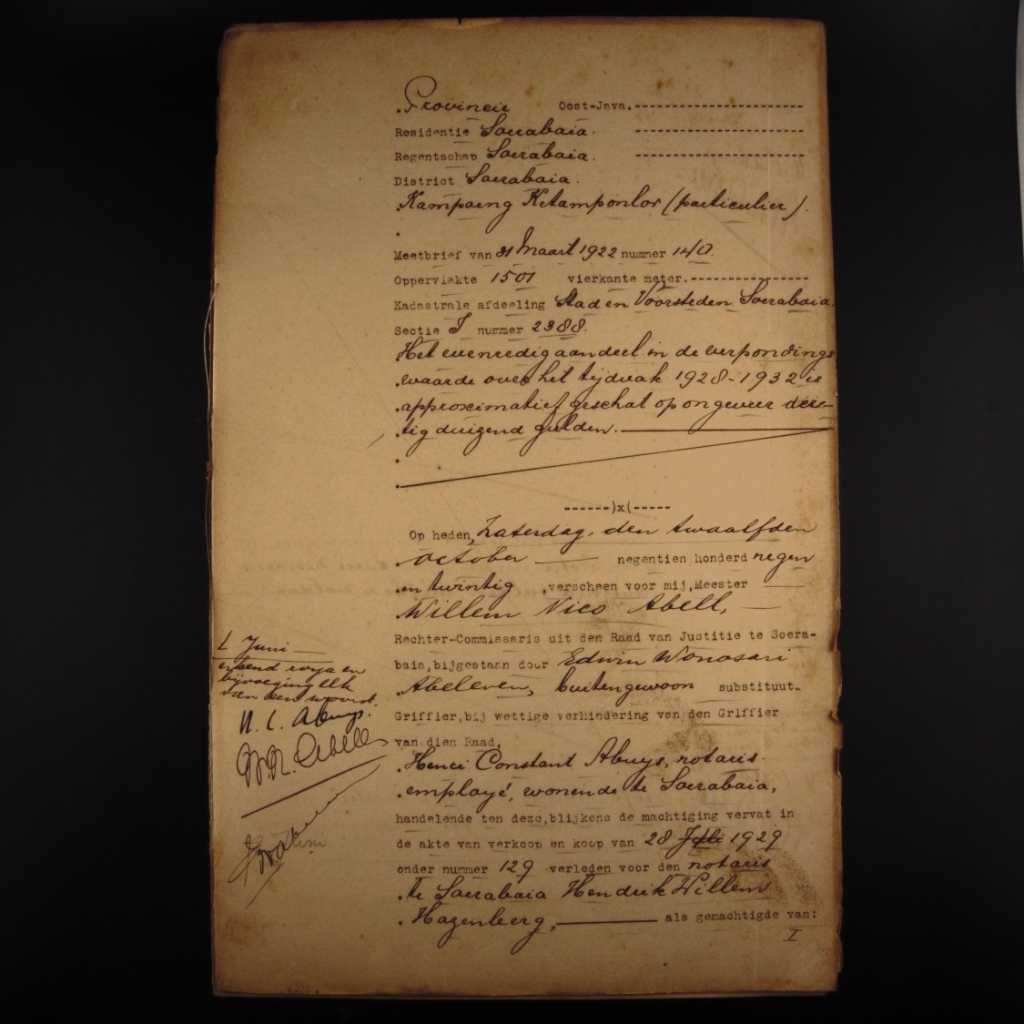 Provincie Oost-Java.
Residentie Soerabaia.
Regentschap Soerabaia.
District Soerabaia.
Kampoeng Ketamponlor (particulier).
Meetbrief van 31 Maart 1922 nummer 140.
Oppervlakte 1501 vierkante meter.
Kadastrale afdeeling Stad en Voorsteden Soerabaia.
Sectie I nummer 2388.
Het evenredig aandeel in de verpondings
waarde over het tijdvak 1928-1932 is
approximatief geschat op ongeveer der-
tig duizend gulden.
------)x(-----
Op heden, Zaterdag, den twaalfden
October negentien honderd negen
en twintig ,verscheen voor mij,Meester
Willem Nico Abell,
Rechter-Commissaris uit den Raad van Justitie te Soera-
baia,bijgestaan door Edwin Wonosari
Abeleven, buitengewoon substituut-
Griffier,bij wettige verhindering van den Griffier
van dien Raad,
Henri Constant Abuys, notaris-
employé, wonende te Soerabaia,
handelende ten deze,blijkens de machtiging vervat in
de akte van verkoop en koop van 28 Juli 1929
onder nummer 129 verleden voor den notaris
te Soerabaia Hendrik Willem
Hazenberg, als gemachtigde van:
I
1 Juni
erkend
bijvoeging elk
van een woord.
H. C. Abuys.
W.N. Abell